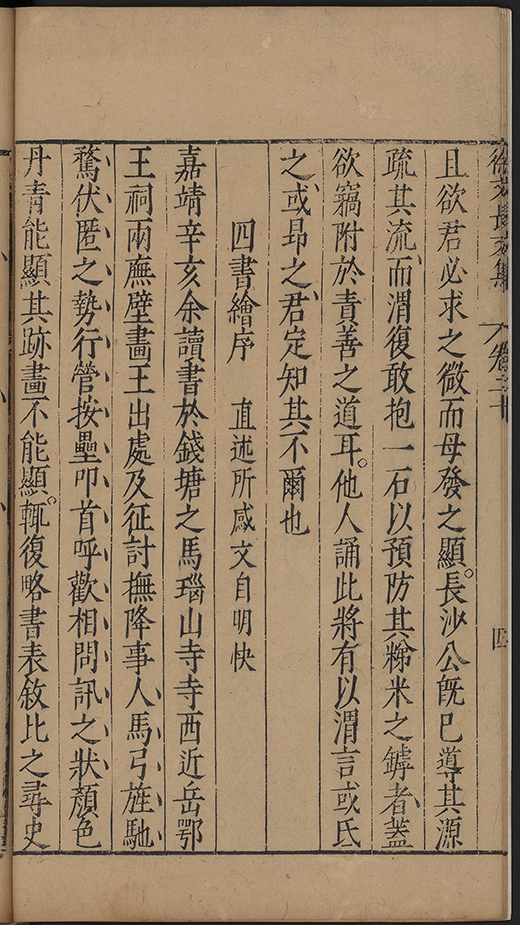 徐文長文集 卷二十 四
且欲君必求之微而毋發之顯。長沙公旣已導其源
疏其流、而渭復敢抱一石以預防其粶米之罅者、蓋
欲竊附於責善之道耳。他人誦此將有以渭言或氐
之、或昻之、君定知其不爾也
四書繪序 直述所感文自明快
嘉靖辛亥余讀書於錢塘之馬瑙山寺寺西近岳鄂
王祠兩廡壁畫王出處及征討撫降事人、馬、弓、旌、馳、
騖、伏、匿、之、勢、行、營、按、壘、叩、首、呼、歡、相、問、訊、之、狀、顏色
丹青能顯其跡畫不能顯。輒復略書表敘比之尋史